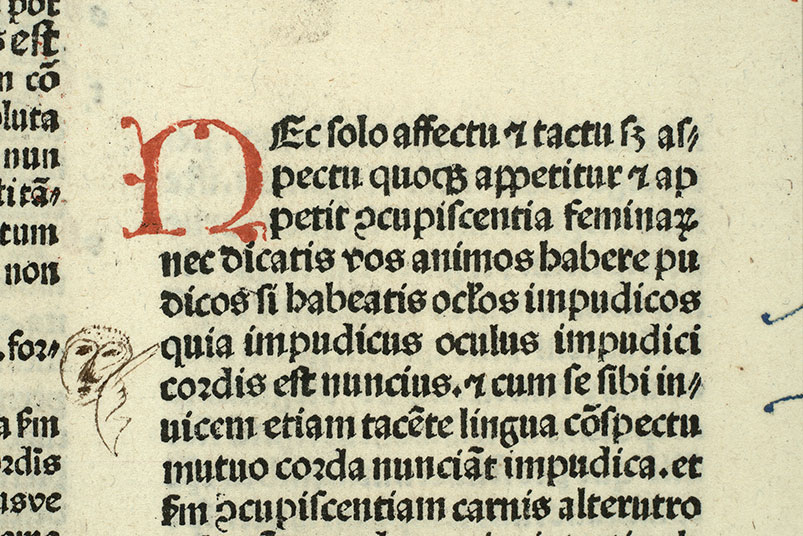 pot
est
n cō
oluta
nun
titā⸗
tum
non
for⸗
a ẜm
ordis
usve
NEc solo affectu ⁊ tactu sꝫ as⸗
pectu quoqꝫ aꝑpetitur ⁊ ap
petit ꝯcupiscentia feminaꝝ
nec dicatis vos animos habere pu
dicos si habeatis ocƚos impudicos
quia impudicus oculus impudici
cordis est nuncius. ⁊ cum se sibi in⸗
uicem etiam tacēte lingua cōspectu
mutuo corda nunciāt impudica. et
ẜm ꝯcupiscentiam carnis alterutro